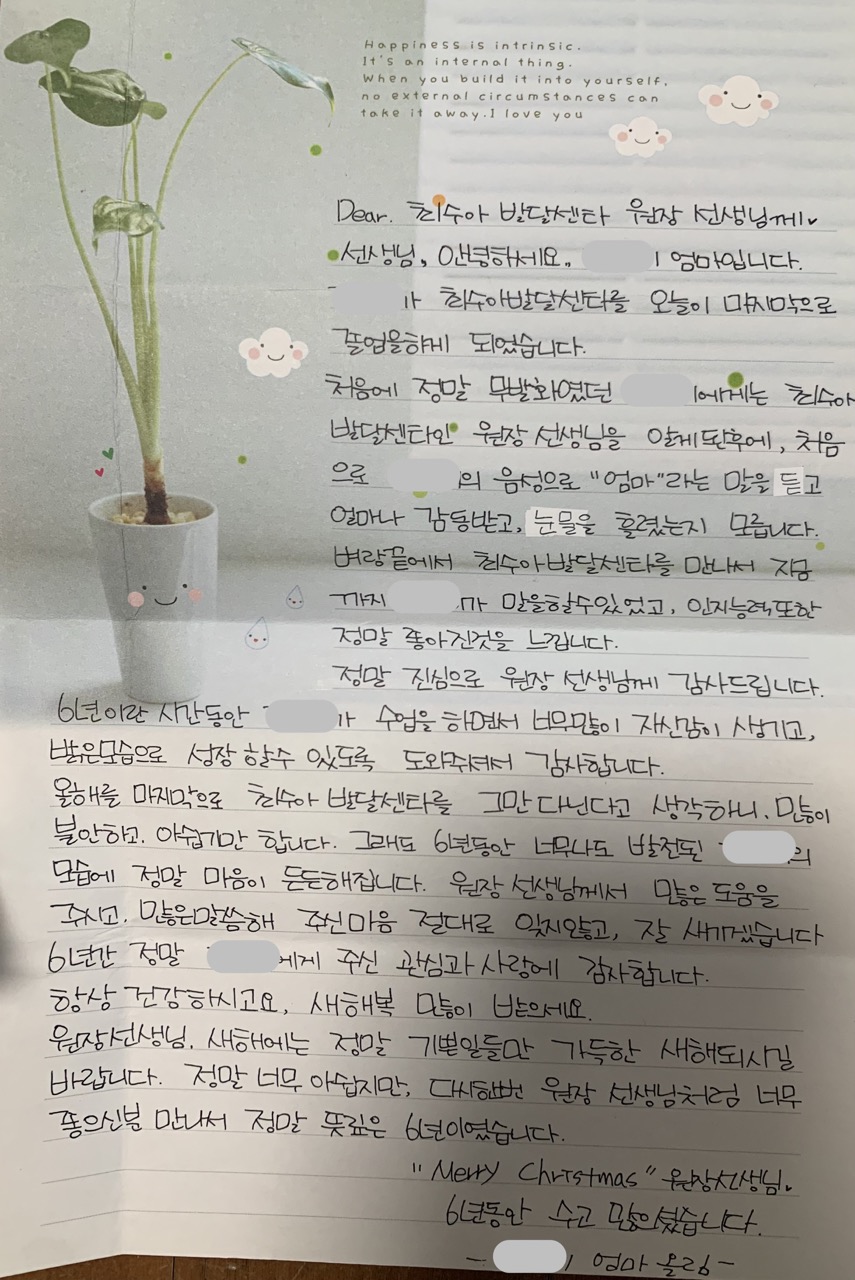 Happiness is intrinsic.
It's an internal thing.
When you build it into yourself,
no external circumstances can
take it away. I love you
Dear. 최수아 발달센타 원장 선생님께♥
선생님, 안녕하세요. 이 엄마입니다.
가 최수아발달센타를 오늘이 마지막으로
졸업을하게 되었습니다.
처음에 정말 무발화였던 이에게는 최수아
발달센타인 원장 선생님을 알게된후에, 처음
으로 의 음성으로 "엄마"라는 말을 듣고
얼마나 감동받고, 눈물을 흘렸는지 모릅니다.
벼랑끝에서 최수아발달센타를 만나서 지금
까지 가 말을할수있었고, 인지능력또한
정말 좋아진것을 느낍니다.
정말 진심으로 원장 선생님께 감사드립니다.
6년이란 시간동안 가 수업을 하면서 너무많이 자신감이 생기고,
밝은모습으로 성장 할수 있도록 도와주셔서 감사합니다.
올해를 마지막으로 최수아 발달센타를 그만 다닌다고 생각하니. 많이
불안하고. 아쉽기만 합니다. 그래도 6년동안 너무나도 발전된 의
모습에 정말 마음이 든든해집니다. 원장 선생님께서 많은 도움을
주시고. 많은말씀해 주신마음 절대로 잊지않고, 잘 새기겠습니다
6년간 정말 에게 주신 관심과 사랑에 감사합니다.
항상 건강하시고요, 새해복 많이 받으세요.
원장선생님. 새해에는 정말 기쁜일들만 가득한 새해되시길
바랍니다. 정말 너무 아쉽지만, 다시한번 원장 선생님처럼 너무
좋으신분 만나서 정말 뜻깊은 6년이였습니다.
"Merry Christmas" 원장선생님♥
6년동안 수고 많으셨습니다.
- 이 엄마 올림-